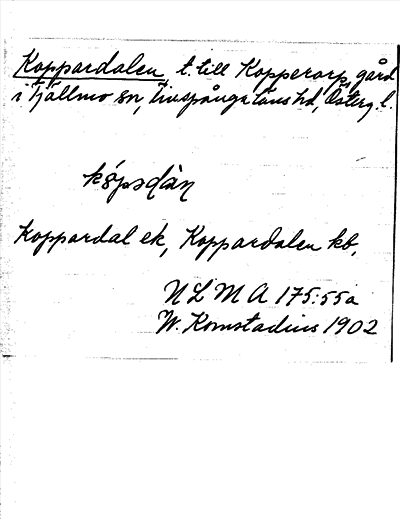 Koppardalen, t. till Kopperarp, gård
i Tjällmo sn, Finspånga läns hd, Österg. l.
Koppardal ek, Koppardalen kb.
NLMA 175:55a
W. Komstadius 1902